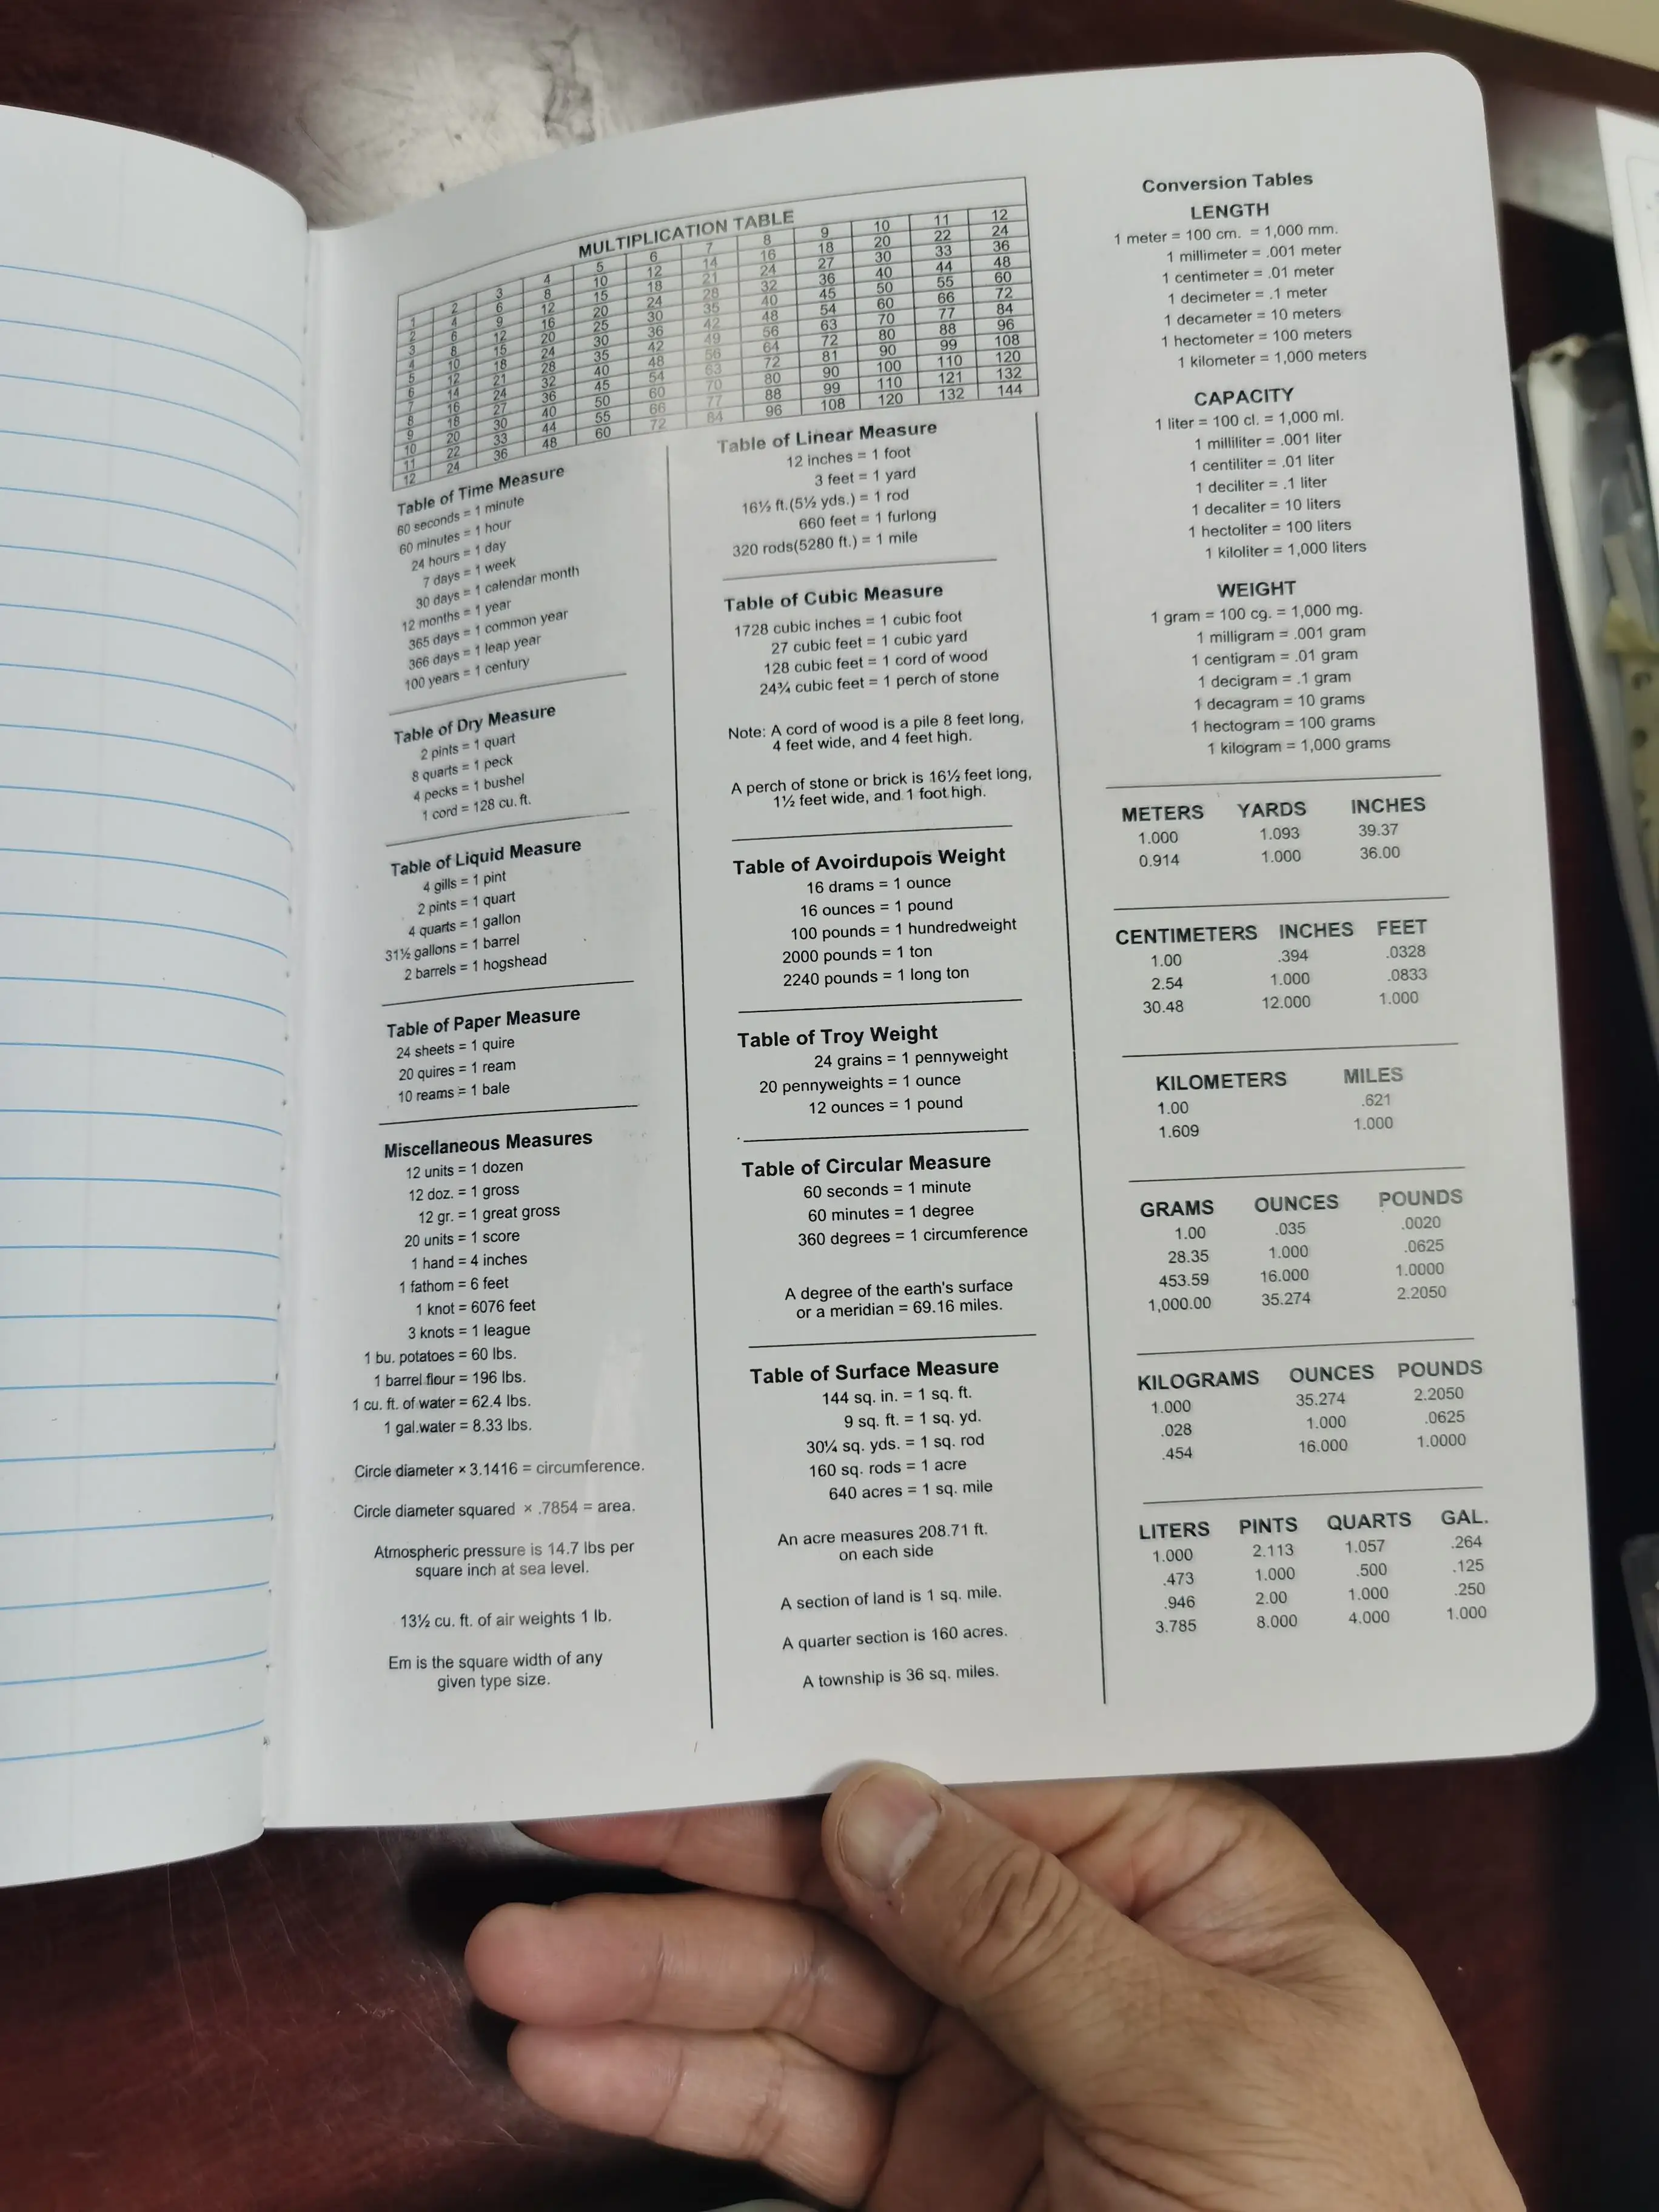 MULTIPLICATION TABLE
1 2 3 4 5 6 7 8 9 10 11 12
2 4 6 8 10 12 14 16 18 20 22 24
3 6 9 12 15 18 21 24 27 30 33 36
4 8 12 16 20 24 28 32 36 40 44 48
5 10 15 20 25 30 35 40 45 50 55 60
6 12 18 24 30 36 42 48 54 60 66 72
7 14 21 28 35 42 49 56 63 70 77 84
8 16 24 32 40 48 56 64 72 80 88 96
9 18 27 36 45 54 63 72 81 90 99 108
10 20 30 40 50 60 70 80 90 100 110 120
11 22 33 44 55 66 77 88 99 110 121 132
12 24 36 48 60 72 84 96 108 120 132 144
Table of Time Measure
60 seconds = 1 minute
60 minutes = 1 hour
24 hours = 1 day
7 days = 1 week
30 days = 1 calendar month
12 months = 1 year
365 days = 1 common year
366 days = 1 leap year
100 years = 1 century
Table of Dry Measure
2 pints = 1 quart
8 quarts = 1 peck
4 pecks = 1 bushel
1 cord = 128 cu. ft.
Table of Liquid Measure
4 gills = 1 pint
2 pints = 1 quart
4 quarts = 1 gallon
31½ gallons = 1 barrel
2 barrels = 1 hogshead
Table of Paper Measure
24 sheets = 1 quire
20 quires = 1 ream
10 reams = 1 bale
Miscellaneous Measures
12 units = 1 dozen
12 doz. = 1 gross
12 gr. = 1 great gross
20 units = 1 score
1 hand = 4 inches
1 fathom = 6 feet
1 knot = 6076 feet
3 knots = 1 league
1 bu. potatoes = 60 lbs.
1 barrel flour = 196 lbs.
1 cu. ft. of water = 62.4 lbs.
1 gal.water = 8.33 lbs.
Circle diameter × 3.1416 = circumference.
Circle diameter squared × .7854 = area.
Atmospheric pressure is 14.7 lbs per
square inch at sea level.
13½ cu. ft. of air weights 1 lb.
Em is the square width of any
given type size.
Table of Linear Measure
12 inches = 1 foot
3 feet = 1 yard
16½ ft.(5½ yds.) = 1 rod
660 feet = 1 furlong
320 rods(5280 ft.) = 1 mile
Table of Cubic Measure
1728 cubic inches = 1 cubic foot
27 cubic feet = 1 cubic yard
128 cubic feet = 1 cord of wood
24¾ cubic feet = 1 perch of stone
Note: A cord of wood is a pile 8 feet long,
4 feet wide, and 4 feet high.
A perch of stone or brick is 16½ feet long,
1½ feet wide, and 1 foot high.
Table of Avoirdupois Weight
16 drams = 1 ounce
16 ounces = 1 pound
100 pounds = 1 hundredweight
2000 pounds = 1 ton
2240 pounds = 1 long ton
Table of Troy Weight
24 grains = 1 pennyweight
20 pennyweights = 1 ounce
12 ounces = 1 pound
Table of Circular Measure
60 seconds = 1 minute
60 minutes = 1 degree
360 degrees = 1 circumference
A degree of the earth's surface
or a meridian = 69.16 miles.
Table of Surface Measure
144 sq. in. = 1 sq. ft.
9 sq. ft. = 1 sq. yd.
30¼ sq. yds. = 1 sq. rod
160 sq. rods = 1 acre
640 acres = 1 sq. mile
An acre measures 208.71 ft.
on each side
A section of land is 1 sq. mile.
A quarter section is 160 acres.
A township is 36 sq. miles.
Conversion Tables
LENGTH
1 meter = 100 cm. = 1,000 mm.
1 millimeter = .001 meter
1 centimeter = .01 meter
1 decimeter = .1 meter
1 decameter = 10 meters
1 hectometer = 100 meters
1 kilometer = 1,000 meters
CAPACITY
1 liter = 100 cl. = 1,000 ml.
1 milliliter = .001 liter
1 centiliter = .01 liter
1 deciliter = .1 liter
1 decaliter = 10 liters
1 hectoliter = 100 liters
1 kiloliter = 1,000 liters
WEIGHT
1 gram = 100 cg. = 1,000 mg.
1 milligram = .001 gram
1 centigram = .01 gram
1 decigram = .1 gram
1 decagram = 10 grams
1 hectogram = 100 grams
1 kilogram = 1,000 grams
METERS YARDS INCHES
1.000 1.093 39.37
0.914 1.000 36.00
CENTIMETERS INCHES FEET
1.00 .394 .0328
2.54 1.000 .0833
30.48 12.000 1.000
KILOMETERS MILES
1.00 .621
1.609 1.000
GRAMS OUNCES POUNDS
1.00 .035 .0020
28.35 1.000 .0625
453.59 16.000 1.0000
1,000.00 35.274 2.2050
KILOGRAMS OUNCES POUNDS
1.000 35.274 2.2050
.028 1.000 .0625
.454 16.000 1.0000
LITERS PINTS QUARTS GAL.
1.000 2.113 1.057 .264
.473 1.000 .500 .125
.946 2.00 1.000 .250
3.785 8.000 4.000 1.000